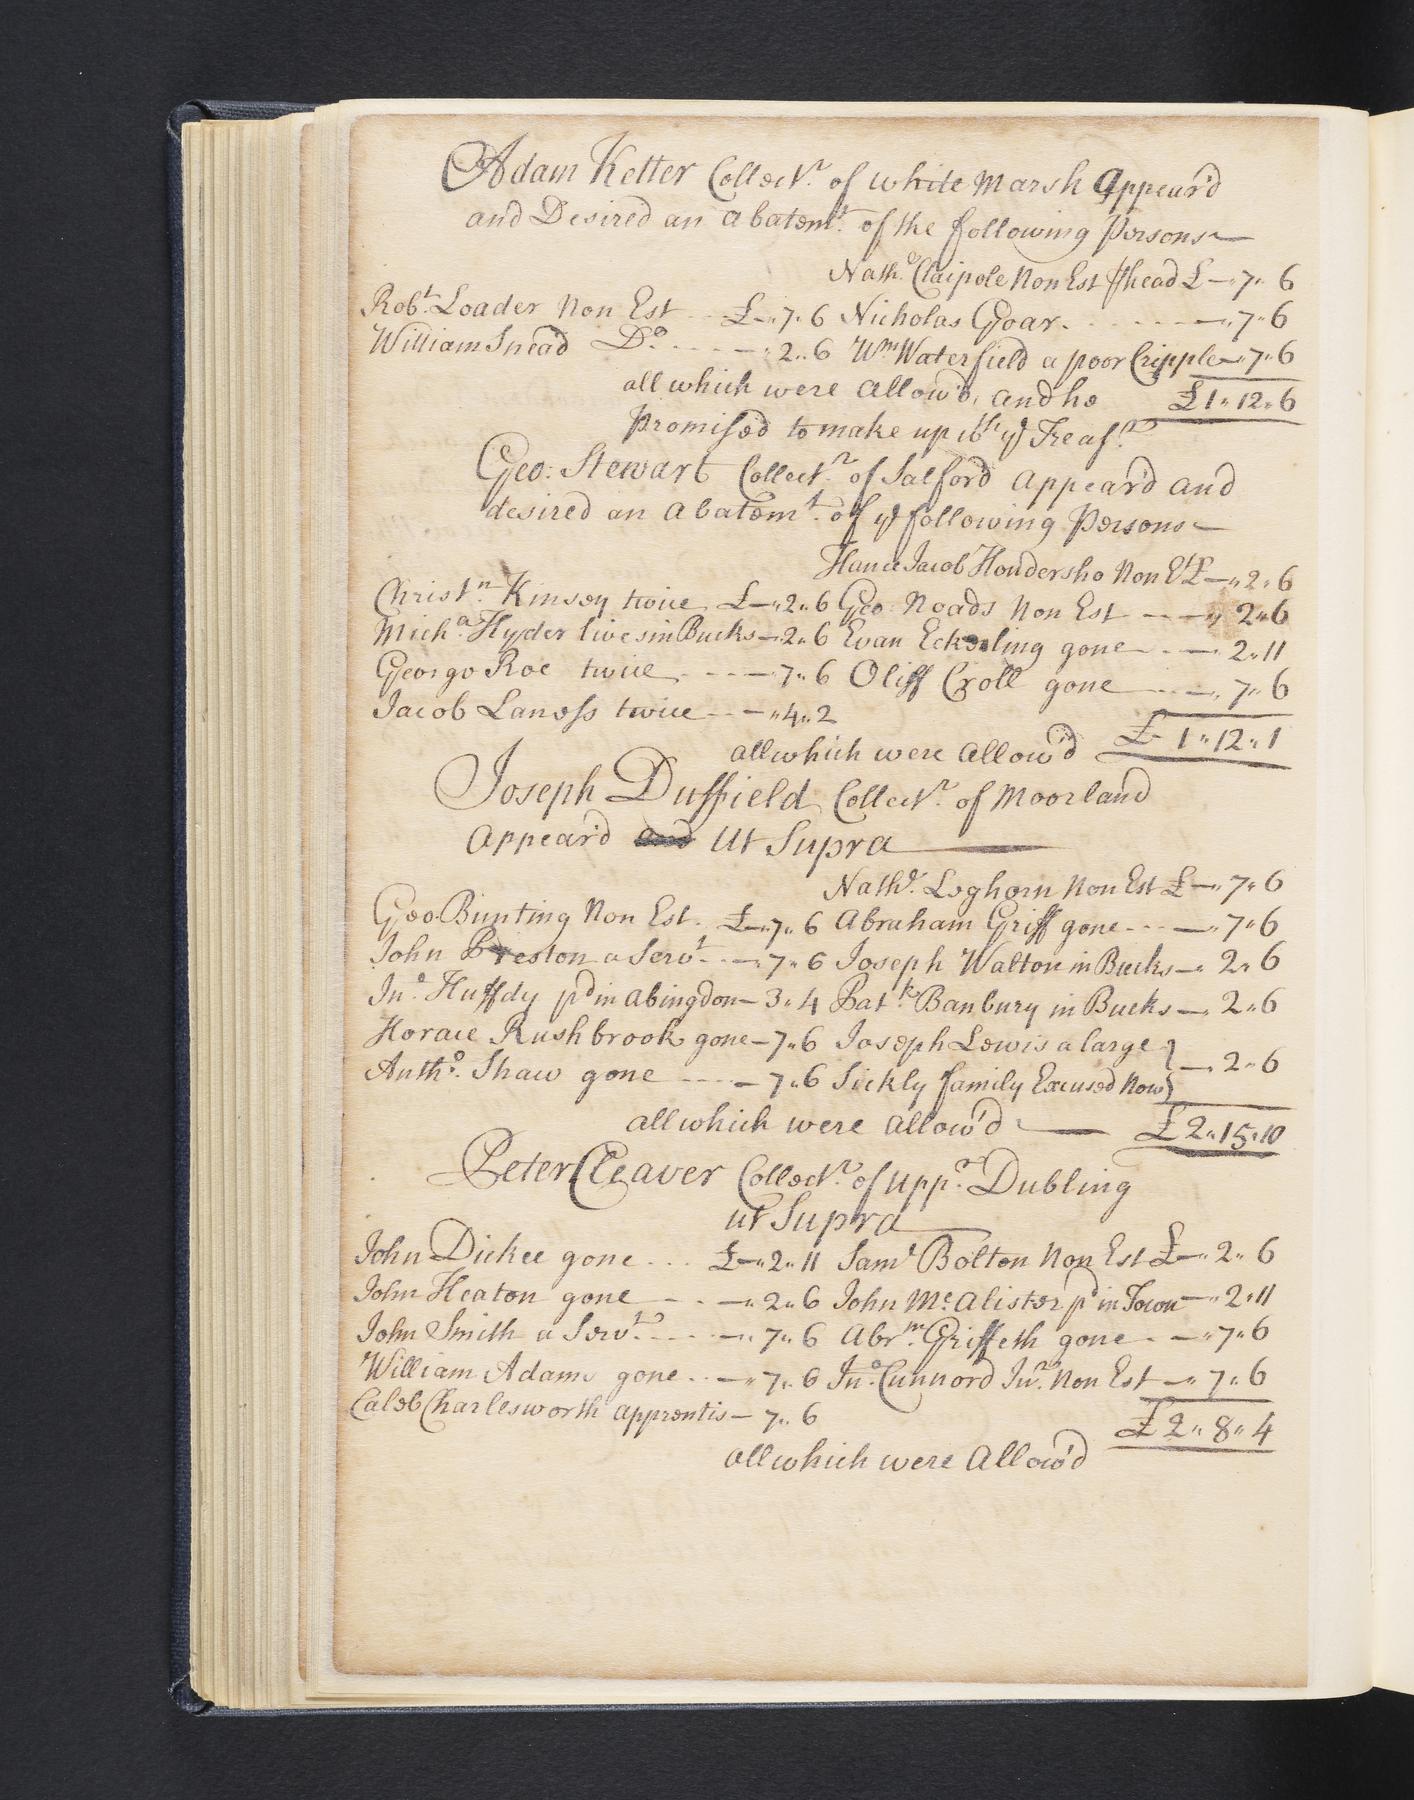 Adam Ketter Collectr. of white Marsh Appear'd
and Desired an abatemt. of the following Persons
Natho. Claipole Non Est head £ — 7 " 6
Robt. Loader Non Est - - £ — " 7 " 6 Nicholas Goar - - - - - — " 7 " 6
William Snead Do. - - - - — " 2 " 6 Wm Waterfield a poor Cripple — " 7 " 6
all which were allow'd, and he £ 1 " 12 " 6
Promised to make up wth ye Treasr.
Geo: Stewart Collectr. of Salford appear'd and
desired an abatemt. of ye following Persons
Hance Jacob Hondersho Non Est £ — " 2 " 6
Christn. Kinsey twice £ — " 2 " 6 Geo: Roads Non Est - - — " 2 " 6
Micha. Hyder lives in Bucks — 2 " 6 Evan Eckerling gone - - — 2 " 11
George Roe twice - - - — 7 " 6 Oliff Croll gone - - — " 7 " 6
Jacob Laness twice - - — " 4 " 2
all which were allow'd £ 1 " 12 " 1
Joseph Duffield Collectr. of Moorland
appear'd and Ut Supra
Nathl. Leghorn Non Est £ — " 7 " 6
Geo. Bunting Non Est. £ — " 7 " 6 Abraham Griff gone - - - — " 7 " 6
John Preston a Servt. - - — " 7 " 6 Joseph Walton in Bucks — " 2 " 6
Jno. Huffdy pd in abingdon — 3 " 4 Patk. Banbury in Bucks — " 2 " 6
Horace Rushbrook gone — 7 " 6 Joseph Lewis a large } — " 2 " 6
Antho. Shaw gone - - - — 7 " 6 Sickly family Excused Now }
all which were allow'd £ 2 " 15 " 10
Peter Cleaver Collectr. of uppr. Dubling
ut Supra
John Dickee gone - - - £ — " 2 " 11 Saml Bolton Non Est £ — " 2 " 6
John Heaton gone - - — " 2 " 6 John Mc.alister pd in Town — " 2 " 11
John Smith a Servt. - - - — " 7 " 6 Abrm. Griffeth gone - — " 7 " 6
William Adams gone - - — " 7 " 6 Jno. Cunnord Junr. Non Est — " 7 " 6
Caleb Charlesworth apprentis — 7 " 6
£ 2 " 8 " 4
all which were allow'd